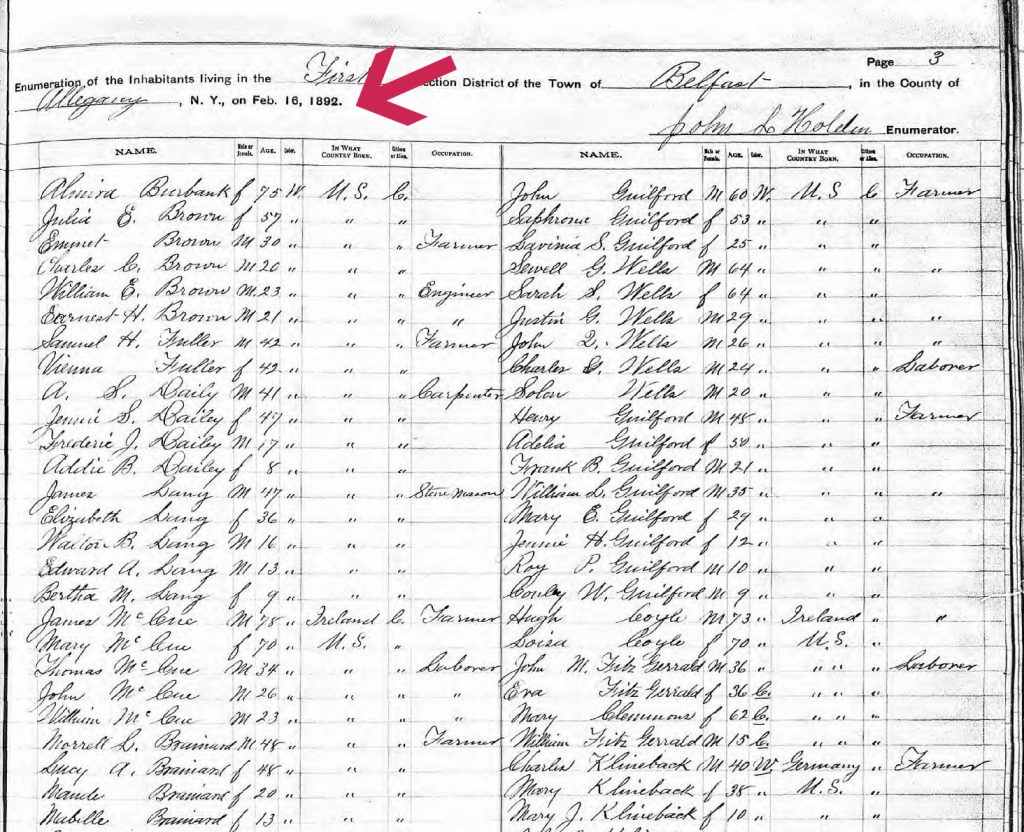 Page 3
Enumeration of the Inhabitants living in the First ection District of the Town of Belfast, in the County of
Allegany, N. Y., on Feb. 16, 1892.
John L Holden Enumerator.
NAME. Male or Female. AGE. Color. IN WHAT COUNTRY BORN. Citizen or Alien. OCCUPATION. NAME. Male or Female. AGE. Color. IN WHAT COUNTRY BORN. Citizen or Alien. OCCUPATION.
Almira Burbank f 75 W. U.S. C. John Guilford M 60 W. U.S C Farmer
Julia E. Brown f 57 " " " Saphronie Guilford f 53 " " "
Emmet Brown M 30 " " " Farmer Lavinia S. Guilford f 25 " " "
Charles C. Brown M 20 " " " Sewell G. Wells M 64 " " " "
William E. Brown M. 23 " " " Engineer Sarah S. Wells f 64 " " "
Earnest H. Brown M 21 " " " " Justin G. Wells M 29 " " " "
Samuel H. Fuller M 42 " " " Farmer John Q. Wells M 26 " " " "
Vienna Fuller f 42 " " " Charles G. Wells M 24 " " " Laborer
A. S. Daily M 41 " " " Carpenter Solon Wells M 20 " " "
Jennie S. Dailey f 47 " " " Henry Guilford M 48 " " " Farmer
Frederic J. Dailey M 17 " " " Adelia Guilford f 50 " " "
Addie B. Dailey f 8 " " " Frank B. Guilford M 21 " " "
James Lang M 47 " " " Stone Mason William L. Guilford M 35 " " " "
Elizabeth Lang f 36 " " " Mary E. Guilford f 29 " " "
Walton B. Lang M 16 " " " Jennie H. Guilford f 12 " " "
Edward A. Lang M 13 " " " Roy P. Guilford M 10 " " "
Bertha M. Lang f 9 " " " Conley W. Guilford M 9 " " "
James McCue M 78 " Ireland C. Farmer Hugh Coyle M 73 " Ireland " "
Mary McCue f 70 " U.S. " Loisa Coyle f 70 " U.S. "
Thomas McCue M 34 " " " Laborer John M. Fitz Gerrald M 36 " " " " Laborer
John McCue M 26 " " " " Eva Fitz Gerrald f 36 C. " " "
William McCue M 23 " " " " Mary Clemmons f 62 C. " " "
Morrell L. Brainard M 48 " " " Farmer William Fitz Gerrald M 15 C. " " "
Lucy A. Brainard f 48 " " " Charles Klineback M 40 W Germany " Farmer
Maude Brainard f 20 " " " Mary Klineback f 38 " U.S. "
Mabelle Brainard f 13 " " " Mary J. Klineback f 10 " " "